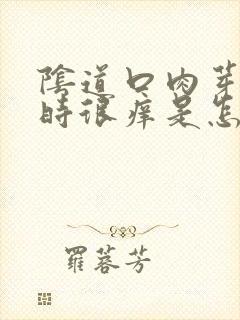 陰道口肉芽
時很痒是怎
羅蓉芳